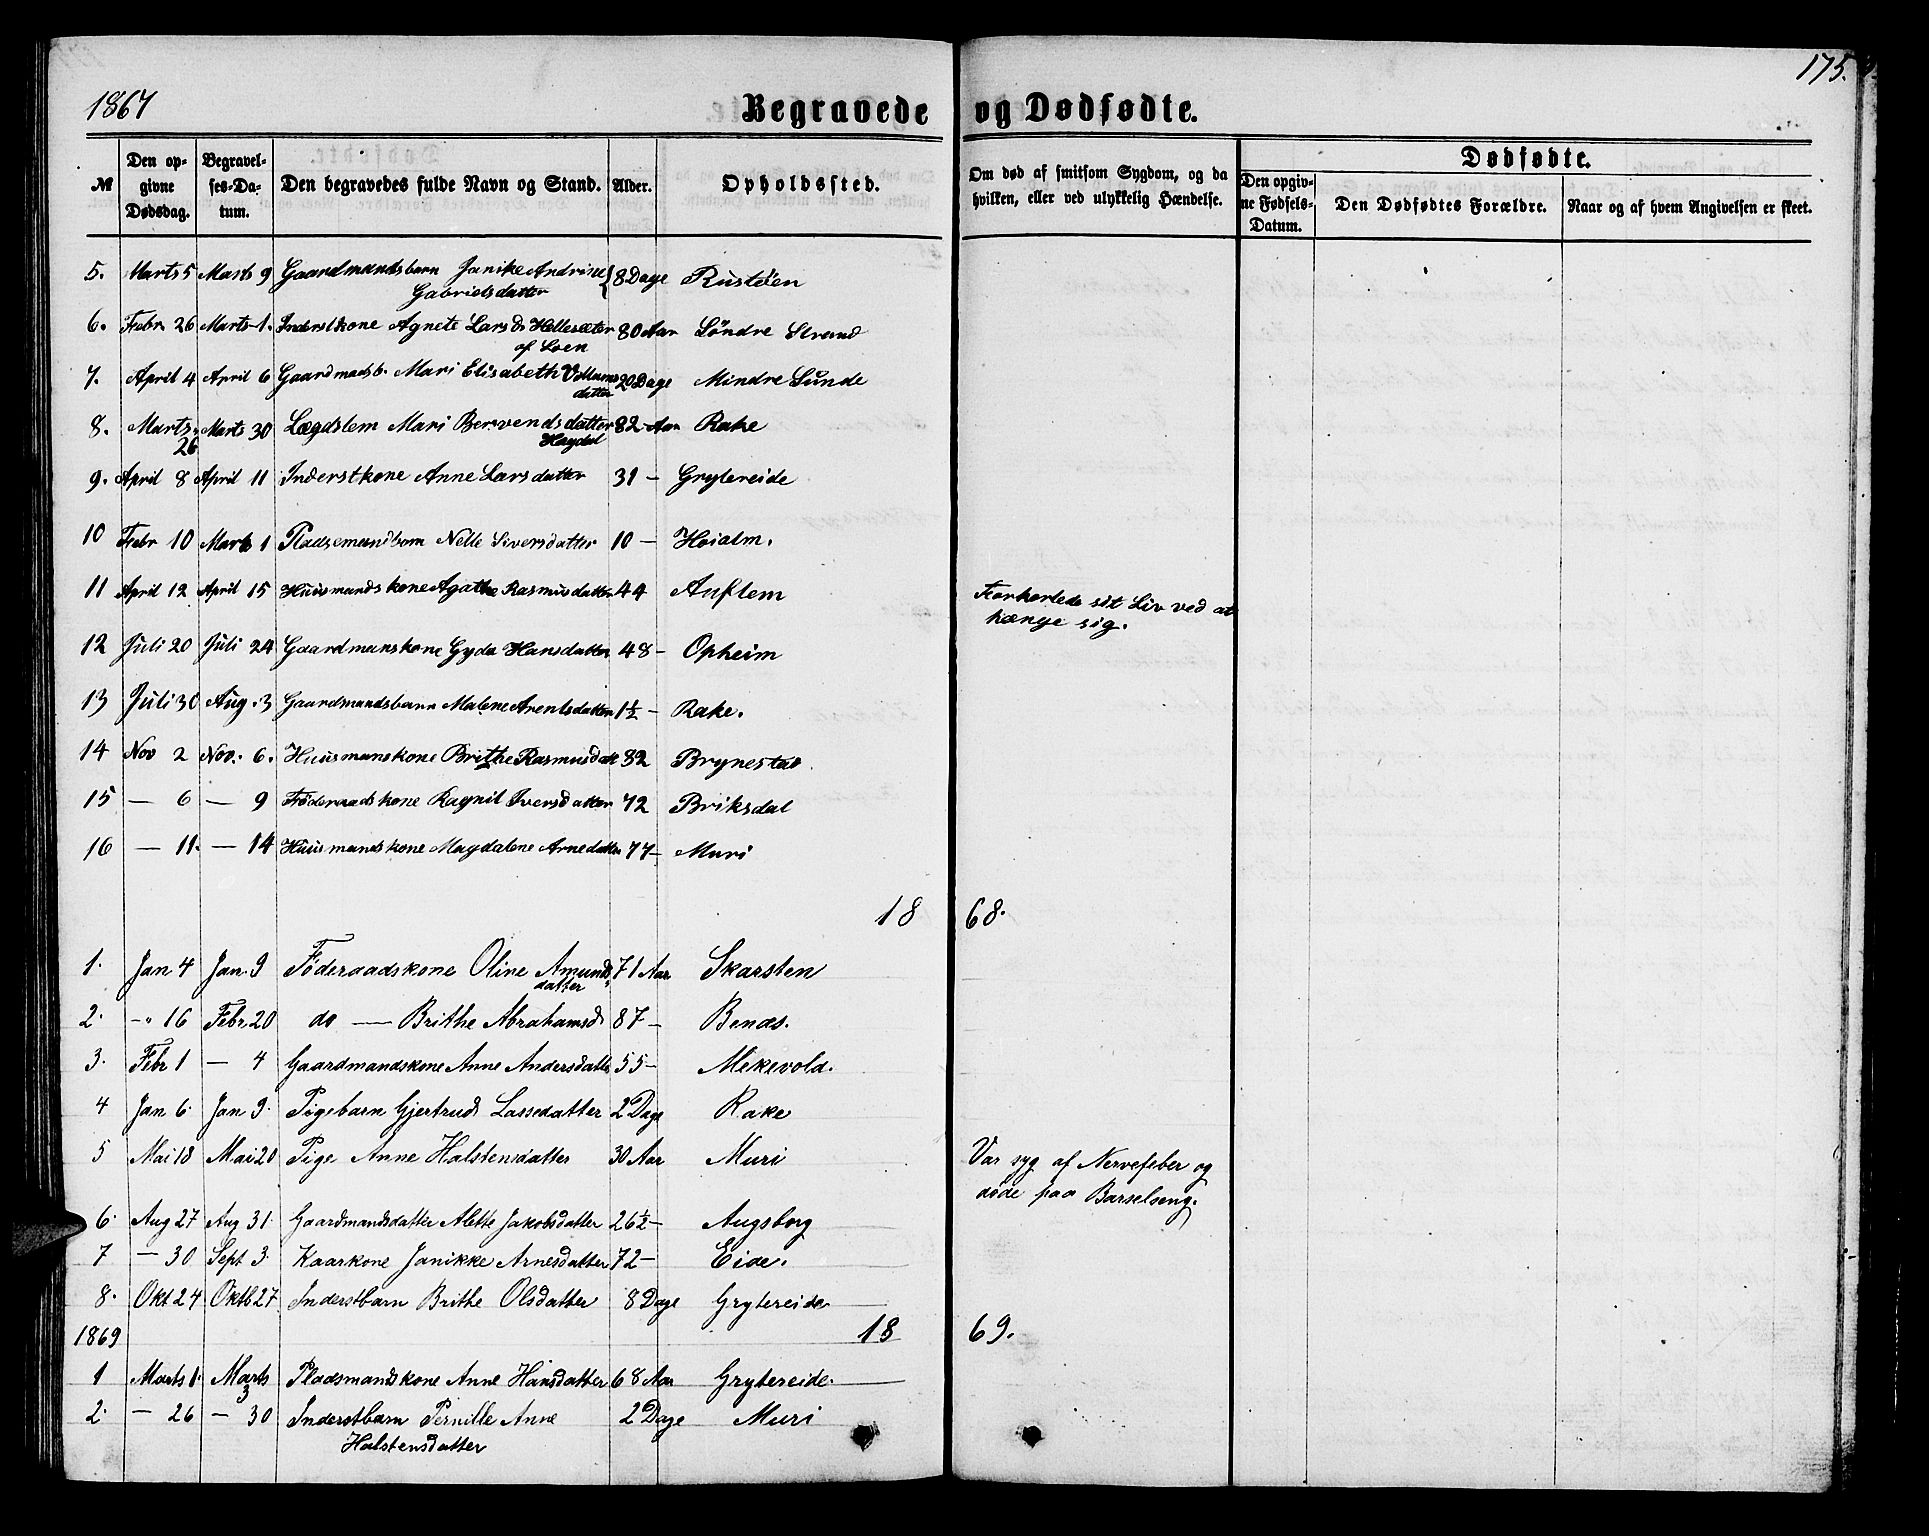 175.
1867 Begravede og Dødfødte.
№ Den opgivne Dødsdag. Begravelses-Datum. Den begravedes fulde Navn og Stand. Alder. Opholdssted. Om død af smitsom Sygdom, og da hvilken, eller ved ulykkelig Hændelse. Dødfødte. Den opgivne Fødsels-Datum. Den Dødfødtes Forældre. Naar og af hvem Angivelsen er skeet.
5. Marts 5 Marts 9 Gaardmandsbarn Janike Andrine 8 Dage Rustøen
Gabrielsdatter
6. Febr. 26 Marts 1. Inderstkone Agnete Lars D. Hellesæter 80 Aar Søndre Strand
af Loen
7. April 4 April 6 Gaardmadsb. Mari Elisabeth 20 Dage Mindre Sunde
datter
8. Marts 26 Marts 30 Lægdslem Mari Bervendsdatter 82 Aar Rake
Hagdal
9. April 8 April 11 Inderstkone Anne Larsdatter 31 - Grytereide
10 Febr 10 Marts 1 Pladsemandbarn Nelle Siversdatter 10 - Hoialm.
11 April 12 April 15 Huusmandskone Agathe Rasmusdatter 44 Auflem Forkortede sit Liv ved at
hænge sig.
12 Juli 20 Juli 24 Gaardmanskone Gyda Hansdatter 48 - Opheim
13 Juli 30 Aug. 3 Gaardmandsbarn Malene Arentsdatter 1½ - Rake.
14 Nov 2 Nov. 6. Huusmanskone Brithe Rasmusdatt 82 Brynestad
15 — 6 — 9 Føderaadskone Ragnil Iversdatter 72 Briksdal
16 — 11. — 14 Huusmandskone Magdalene Arnedatter 77 - Muri
18 68.
1. Jan 4 Jan. 9 Føderaadskone Oline Amunds 71 Aar Skarsten
datter
2. -" 16 Febr. 20 do — Brithe Abrahamsd 87 - Benæs.
3. Febr 1 — 4 Gaardmandskone Anne Andersdatter 55 - Mekevold.
4 Jan 6. Jan 9. Pigebarn Gjertrud Lassedatter 2 Dage Rake
5 Mai 18 Mai 20 Pige Anne Halstensdatter 30 Aar Muri Var syg af Nervefeber og
døde paa Barselseng.
6. Aug 27 Aug 31. Gaardmandsdatter Alette Jakobsdatter 26½ - Augsborg
7 — 30 Sept 3. Kaarkone Janikke Arnesdatter 72 - Eide.
8. Okt 24 Oktb 27 Inderstbarn Brithe Olsdatter 8 Dage Grytereide
1869 18 69.
1 Marts 1. Marts 3 Pladsmandskone Anne Hansdatter 68 Aar Grytereide.
2. — 26 — 30 Inderstbarn Pernille Anne 2 Dage Muri
Halstensdatter